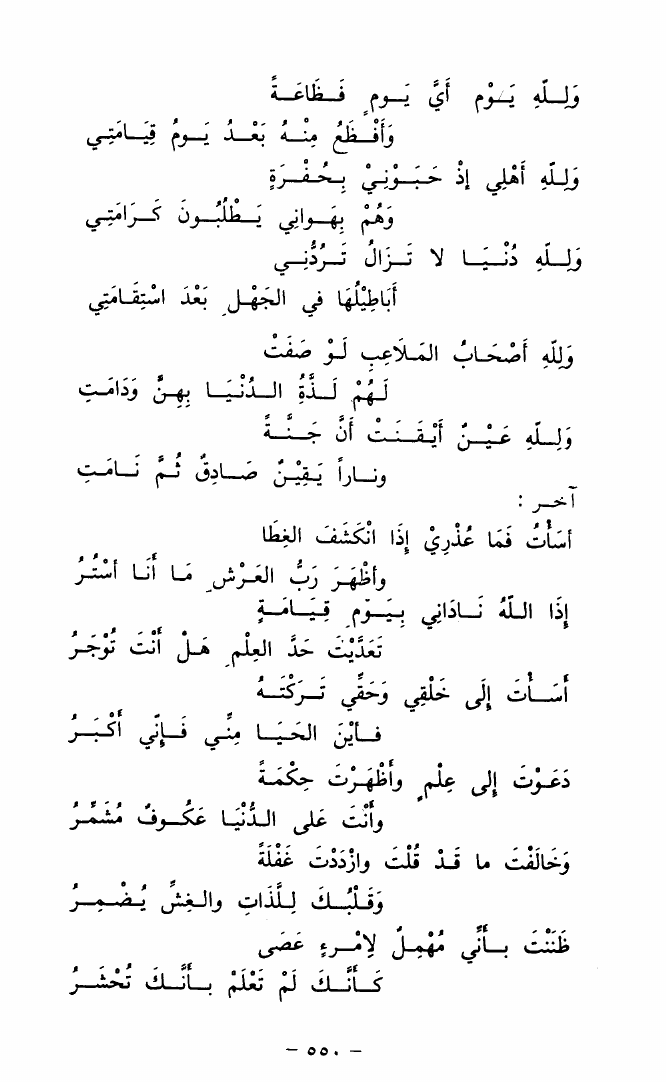 وَلِلّهِ يَوْم أَيَّ يَومٍ فَظَاعَةً
وَأَفْظَعُ مِنْهُ بَعْدُ يَومُ قِيَامَتِي
وَلِلّهِ أَهْلِي إِذْ حَبَوْنِيْ بِحُفْرَةٍ
وَهُمْ بِهَوانِي يَطْلُبُونَ كَرَامَتِي
وَلِلّهِ دُنْيَا لا تَزَالُ تَرُدُّنِي
أَبَاطِيْلُهَا فِي الجَهْلِ بَعْدَ اسْتِقَامَتِي
وَلِلّهِ أَصْحَابُ المَلاَعِبِ لَوْ صَفَتْ
لَهُمْ لَذَّةُ الدُنْيَا بِهِنَّ وَدَامَتِ
وَلِلّهِ عَيْنٌ أَيْقَنَتْ أَنَّ جَنَّةً
وناراً يَقِيْنٌ صَادِقٌ ثُمَّ نَامَتِ
آخر :
أسَأْتُ فَمَا عُذْرِيْ إِذَا انْكَشَفَ الغِطَا
وأظْهَرَ رَبُّ العَرْشِ مَا أَنَا أسْتُرُ
إِذَا اللّهُ نَادَانِي بِيَوْمِ قِيَامَةٍ
تَعَدَّيْتَ حَدَّ العِلْمِ هَلْ أَنْتَ تُوْجَرُ
أَسَأْتَ إِلَى خَلْقِي وَحَقِّي تَرَكْتَهُ
فَأَيْنَ الحَيَا مِنِّي فَإِنِّي أَكْبَرُ
دَعَوْتَ إِلى عِلْمٍ وأَظْهَرْتَ حِكْمَةً
وأَنْتَ عَلى الدُّنْيَا عَكُوفٌ مُشَمِّرُ
وَخَالَفْتَ ما قَدْ قُلْتَ وازْدَدْتَ غَفْلَةً
وَقَلْبُكَ لِلَّذَاتِ والغِشِّ يُضْمِرُ
ظَنَنْتَ بأَنِّي مُهْمِلٌ لِامْرءٍ عَصَى
كَأَنَّكَ لَمْ تَعْلَمْ بأَنَّكَ تُحْشَرُ
– ٥٥٠ –